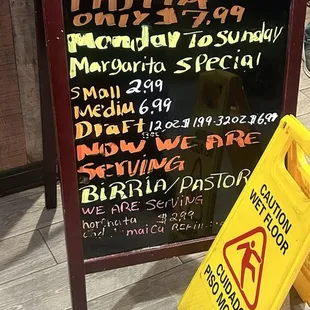 only $7.99
Monday To Sunday
Margarita Special
Small 2.99
Medium 6.99
Draft Beer 12oz $1.99-32oz $6.99
NOW WE ARE
SERVING
BIRRIA/PASTOR
WE ARE SERVING
horchata $2.99
and Jamaica REFILL
CAUTION
WET FLOOR
CUIDADO
PISO MO